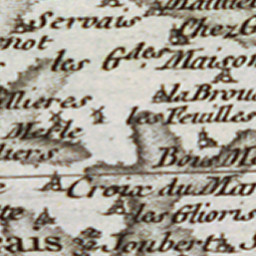 Servais
Chez G
not
les G.des Maison
llieres
la Brou
les Feuilles
Mesle
liers
Bous Me
Croix du Mar
te
les Glioris
eais
Joubert